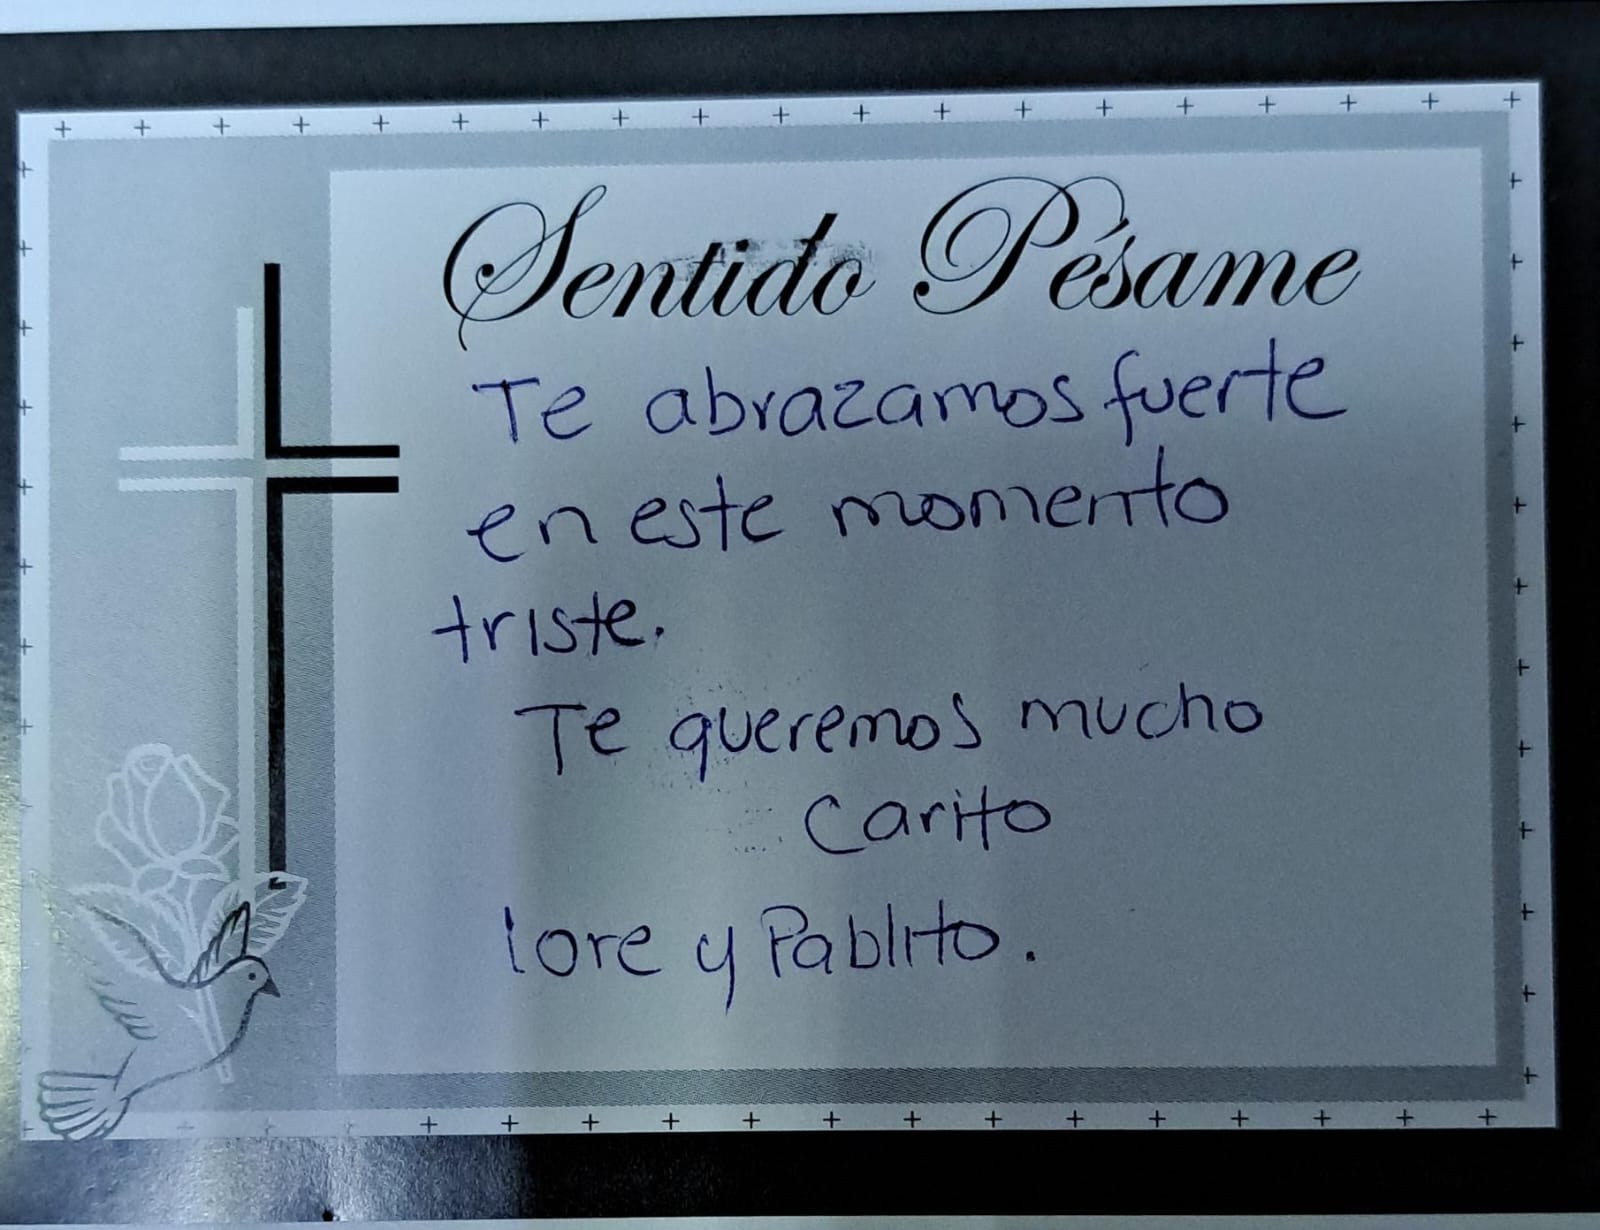 Sentido Pésame
Te abrazamos fuerte
en este momento
triste.
Te queremos mucho
Carito
lore y Pablito.